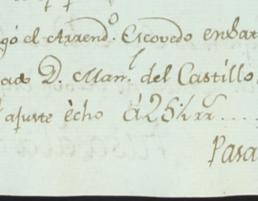 gó el Arrend.º Escovedo en bar
D. Man.l del Castillo
ajuste echo á 25½ rr....
Pasa